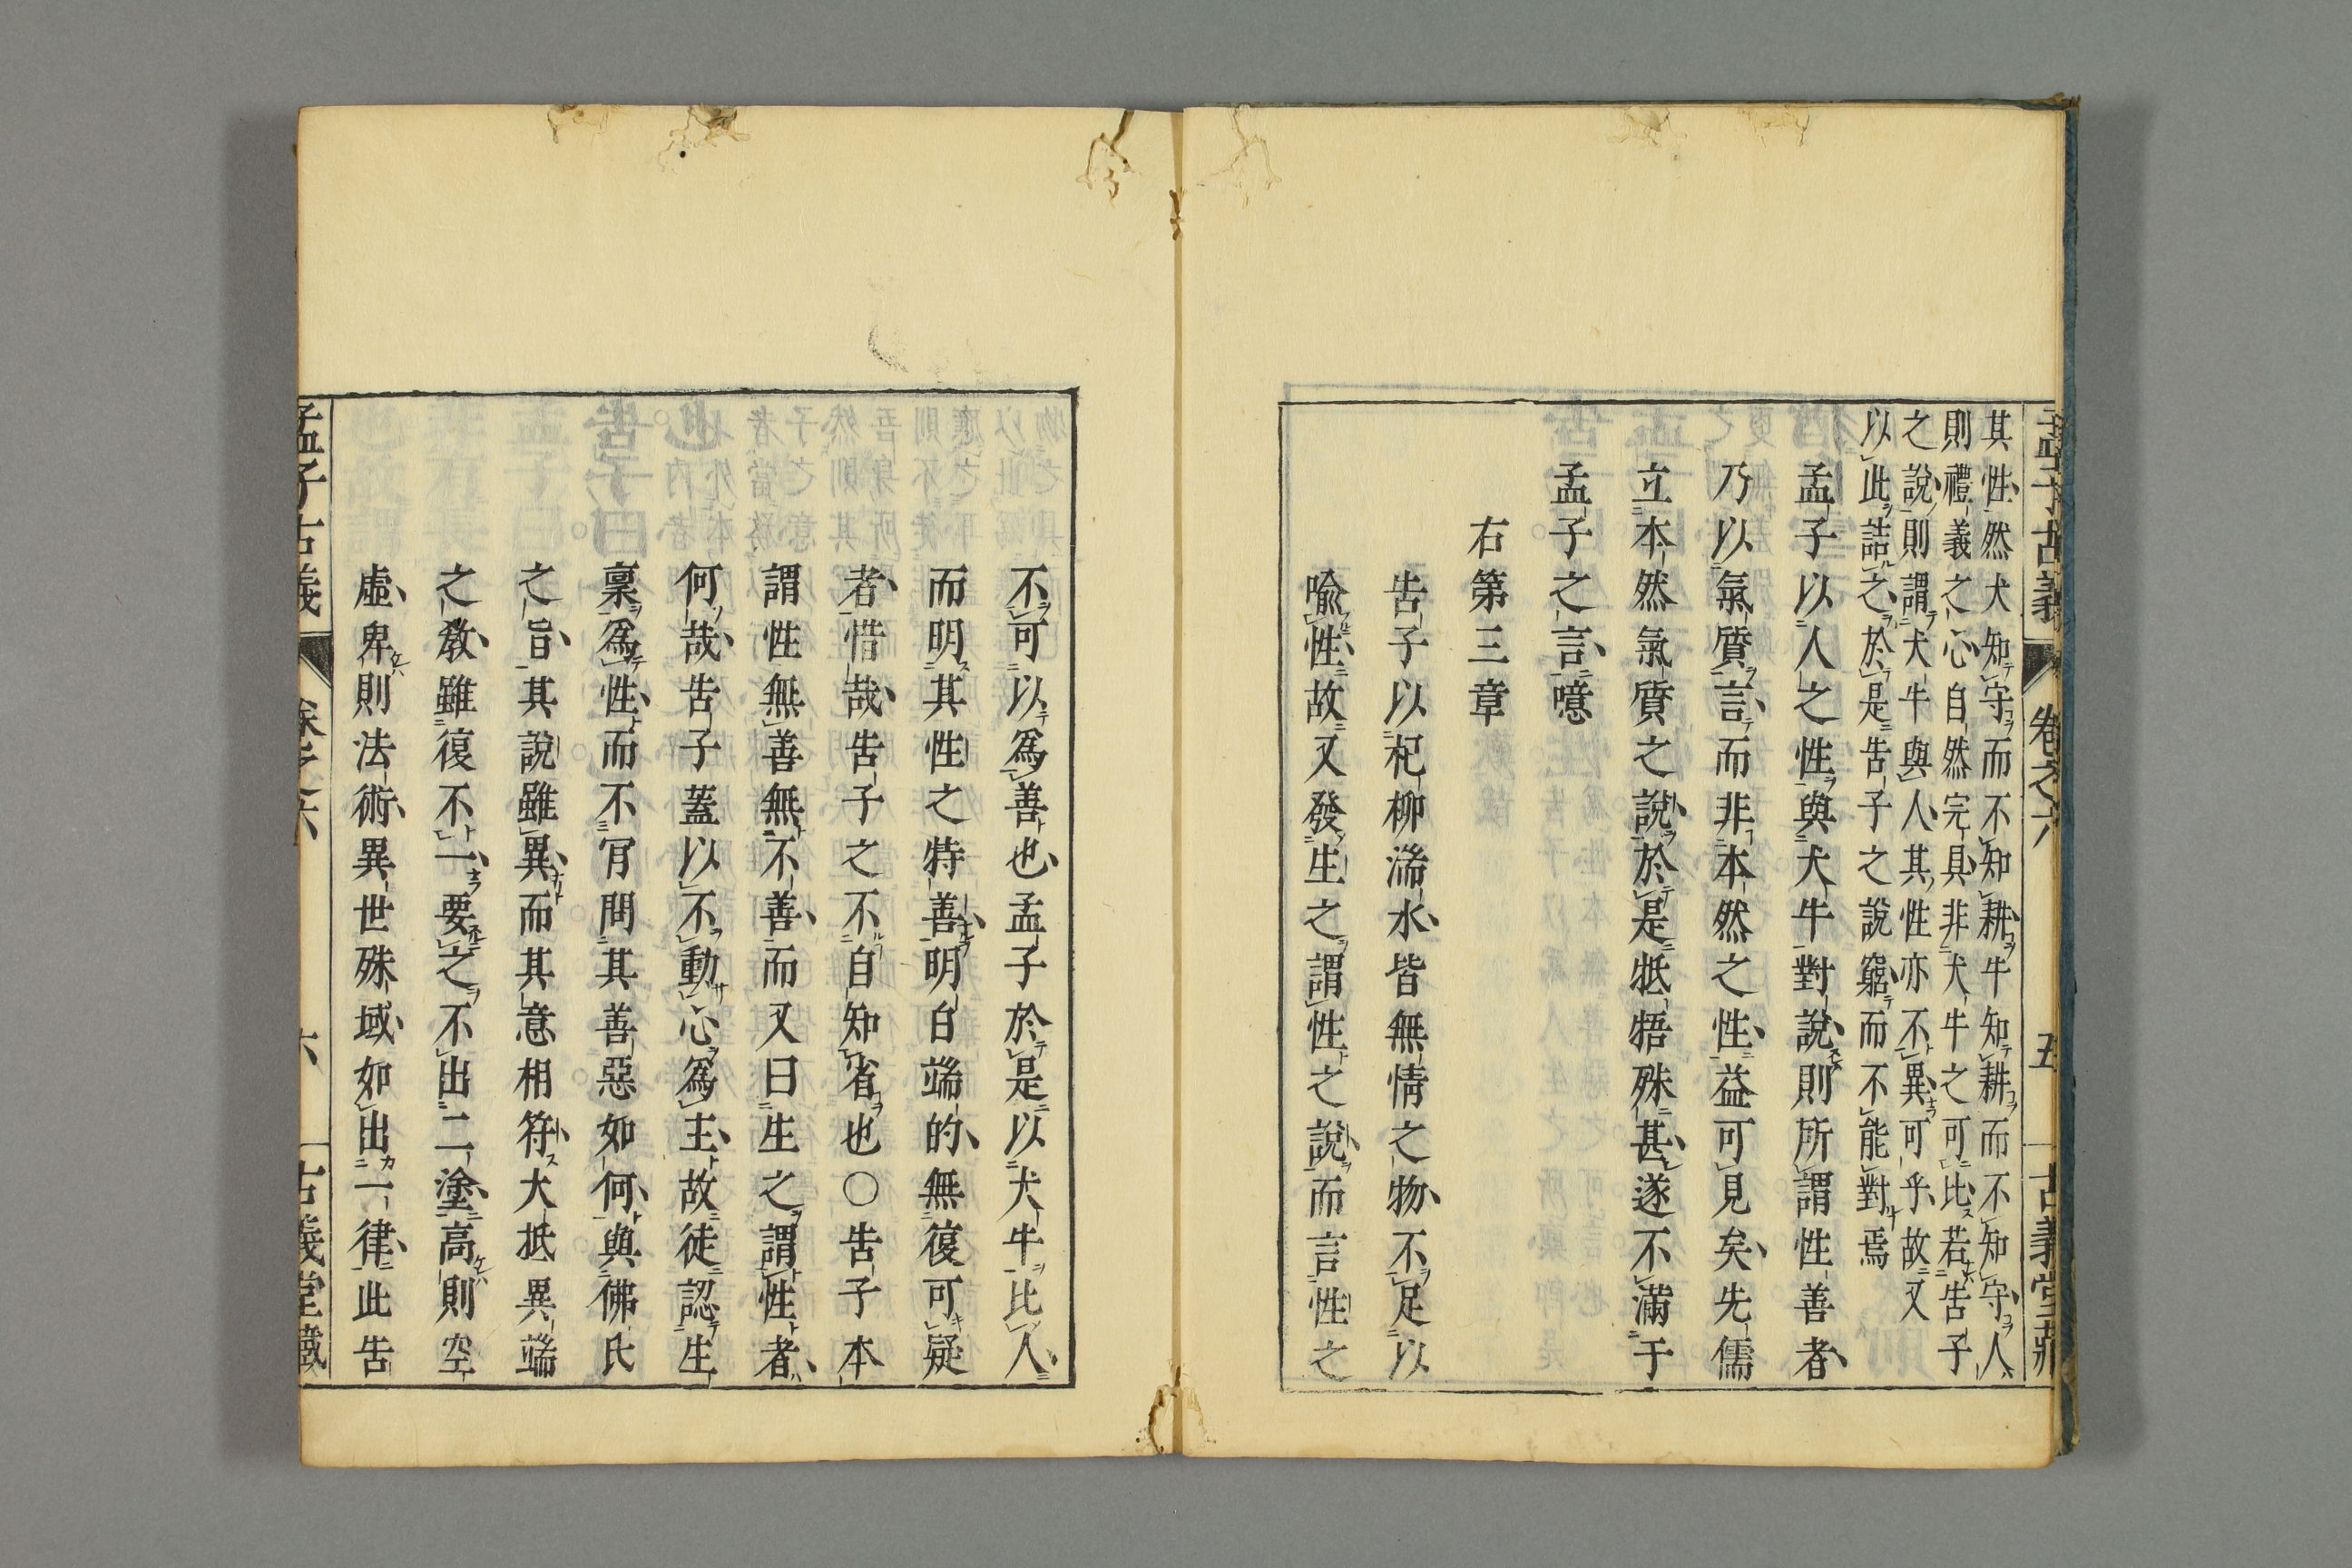 孟子古義 卷之六 五 古義堂藏
其性然犬知守而不知耕牛知耕而不知守人
則禮義之心自然完具非犬牛之可比若告子
之說則謂犬牛與人其性亦不異可乎故又
以此詰之於是告子之說窮而不能對焉
孟子以人之性與犬牛對說則所謂性善者
乃以氣質言而非本然之性益可見矣先儒
立本然氣質之說於是牴牾殊甚遂不滿于
孟子之言噫
右第三章
告子以杞柳湍水皆無情之物不足以
喩性故又發生之謂性之說而言性之
不可以爲善也孟子於是以犬牛比人
而明其性之特善明白端的無復可疑
者惜哉告子之不自知省也○告子本
謂性無善無不善而又曰生之謂性者
何哉告子蓋以不動心爲主故徒認生
稟爲性而不肎問其善惡如何與佛氏
之旨其說雖異而其意相符大抵異端
之敎雖復不一要之不出二塗高則空
虛卑則法術異世殊域如出一律此告
孟子古義 卷之六 六 古義堂藏